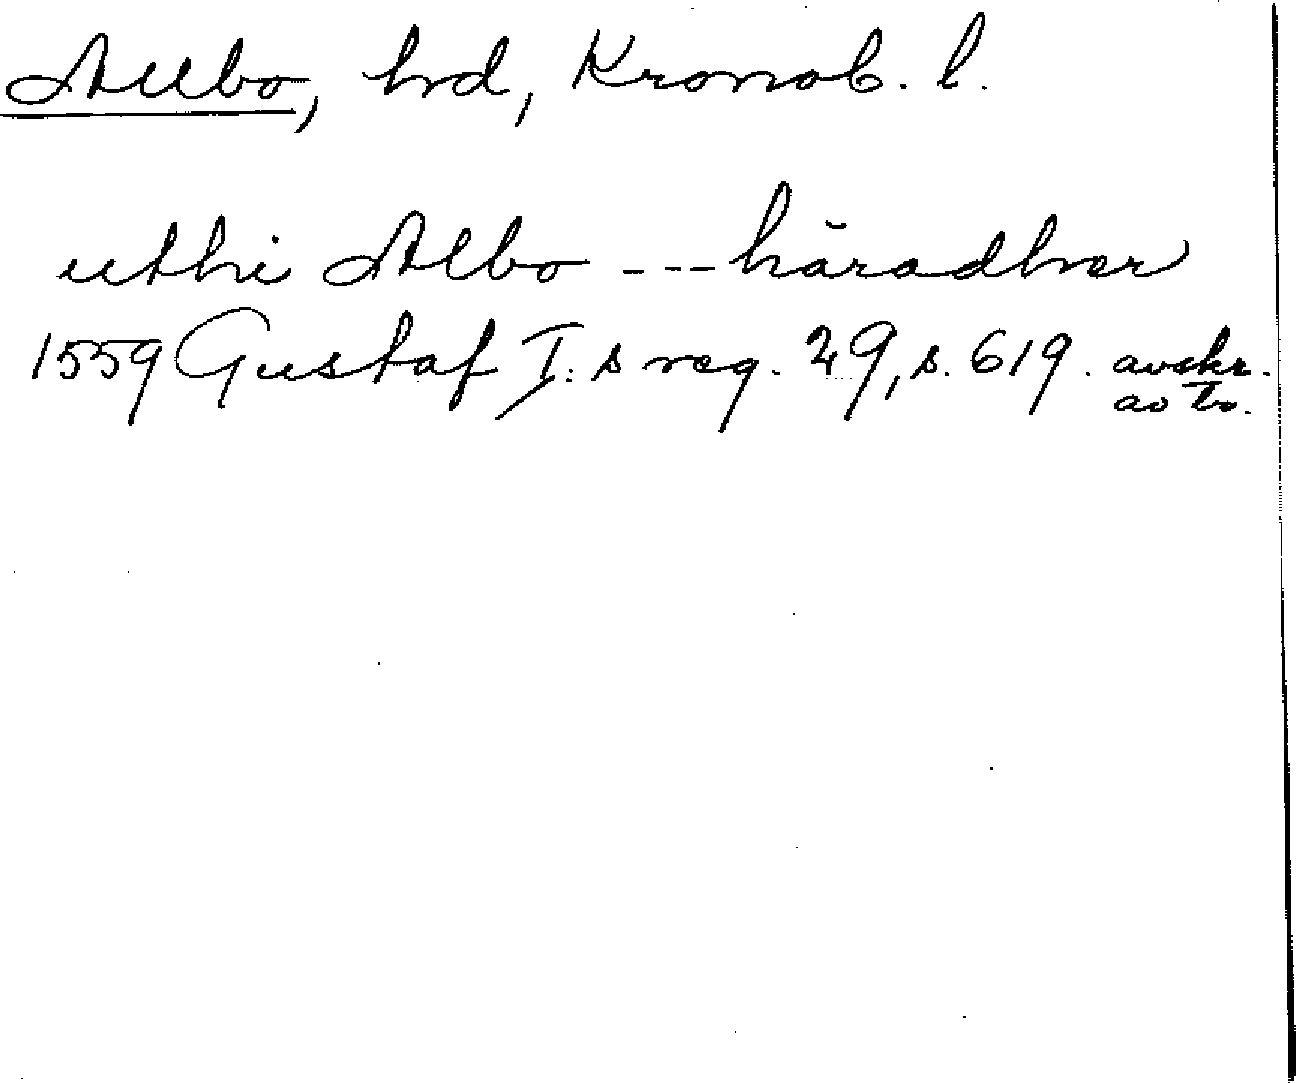 Allbo, hrd, Kronob. l.
uthi Albo --- häradher
1559 Gustaf I:s reg. 29, s. 619. avskr.
av tr.